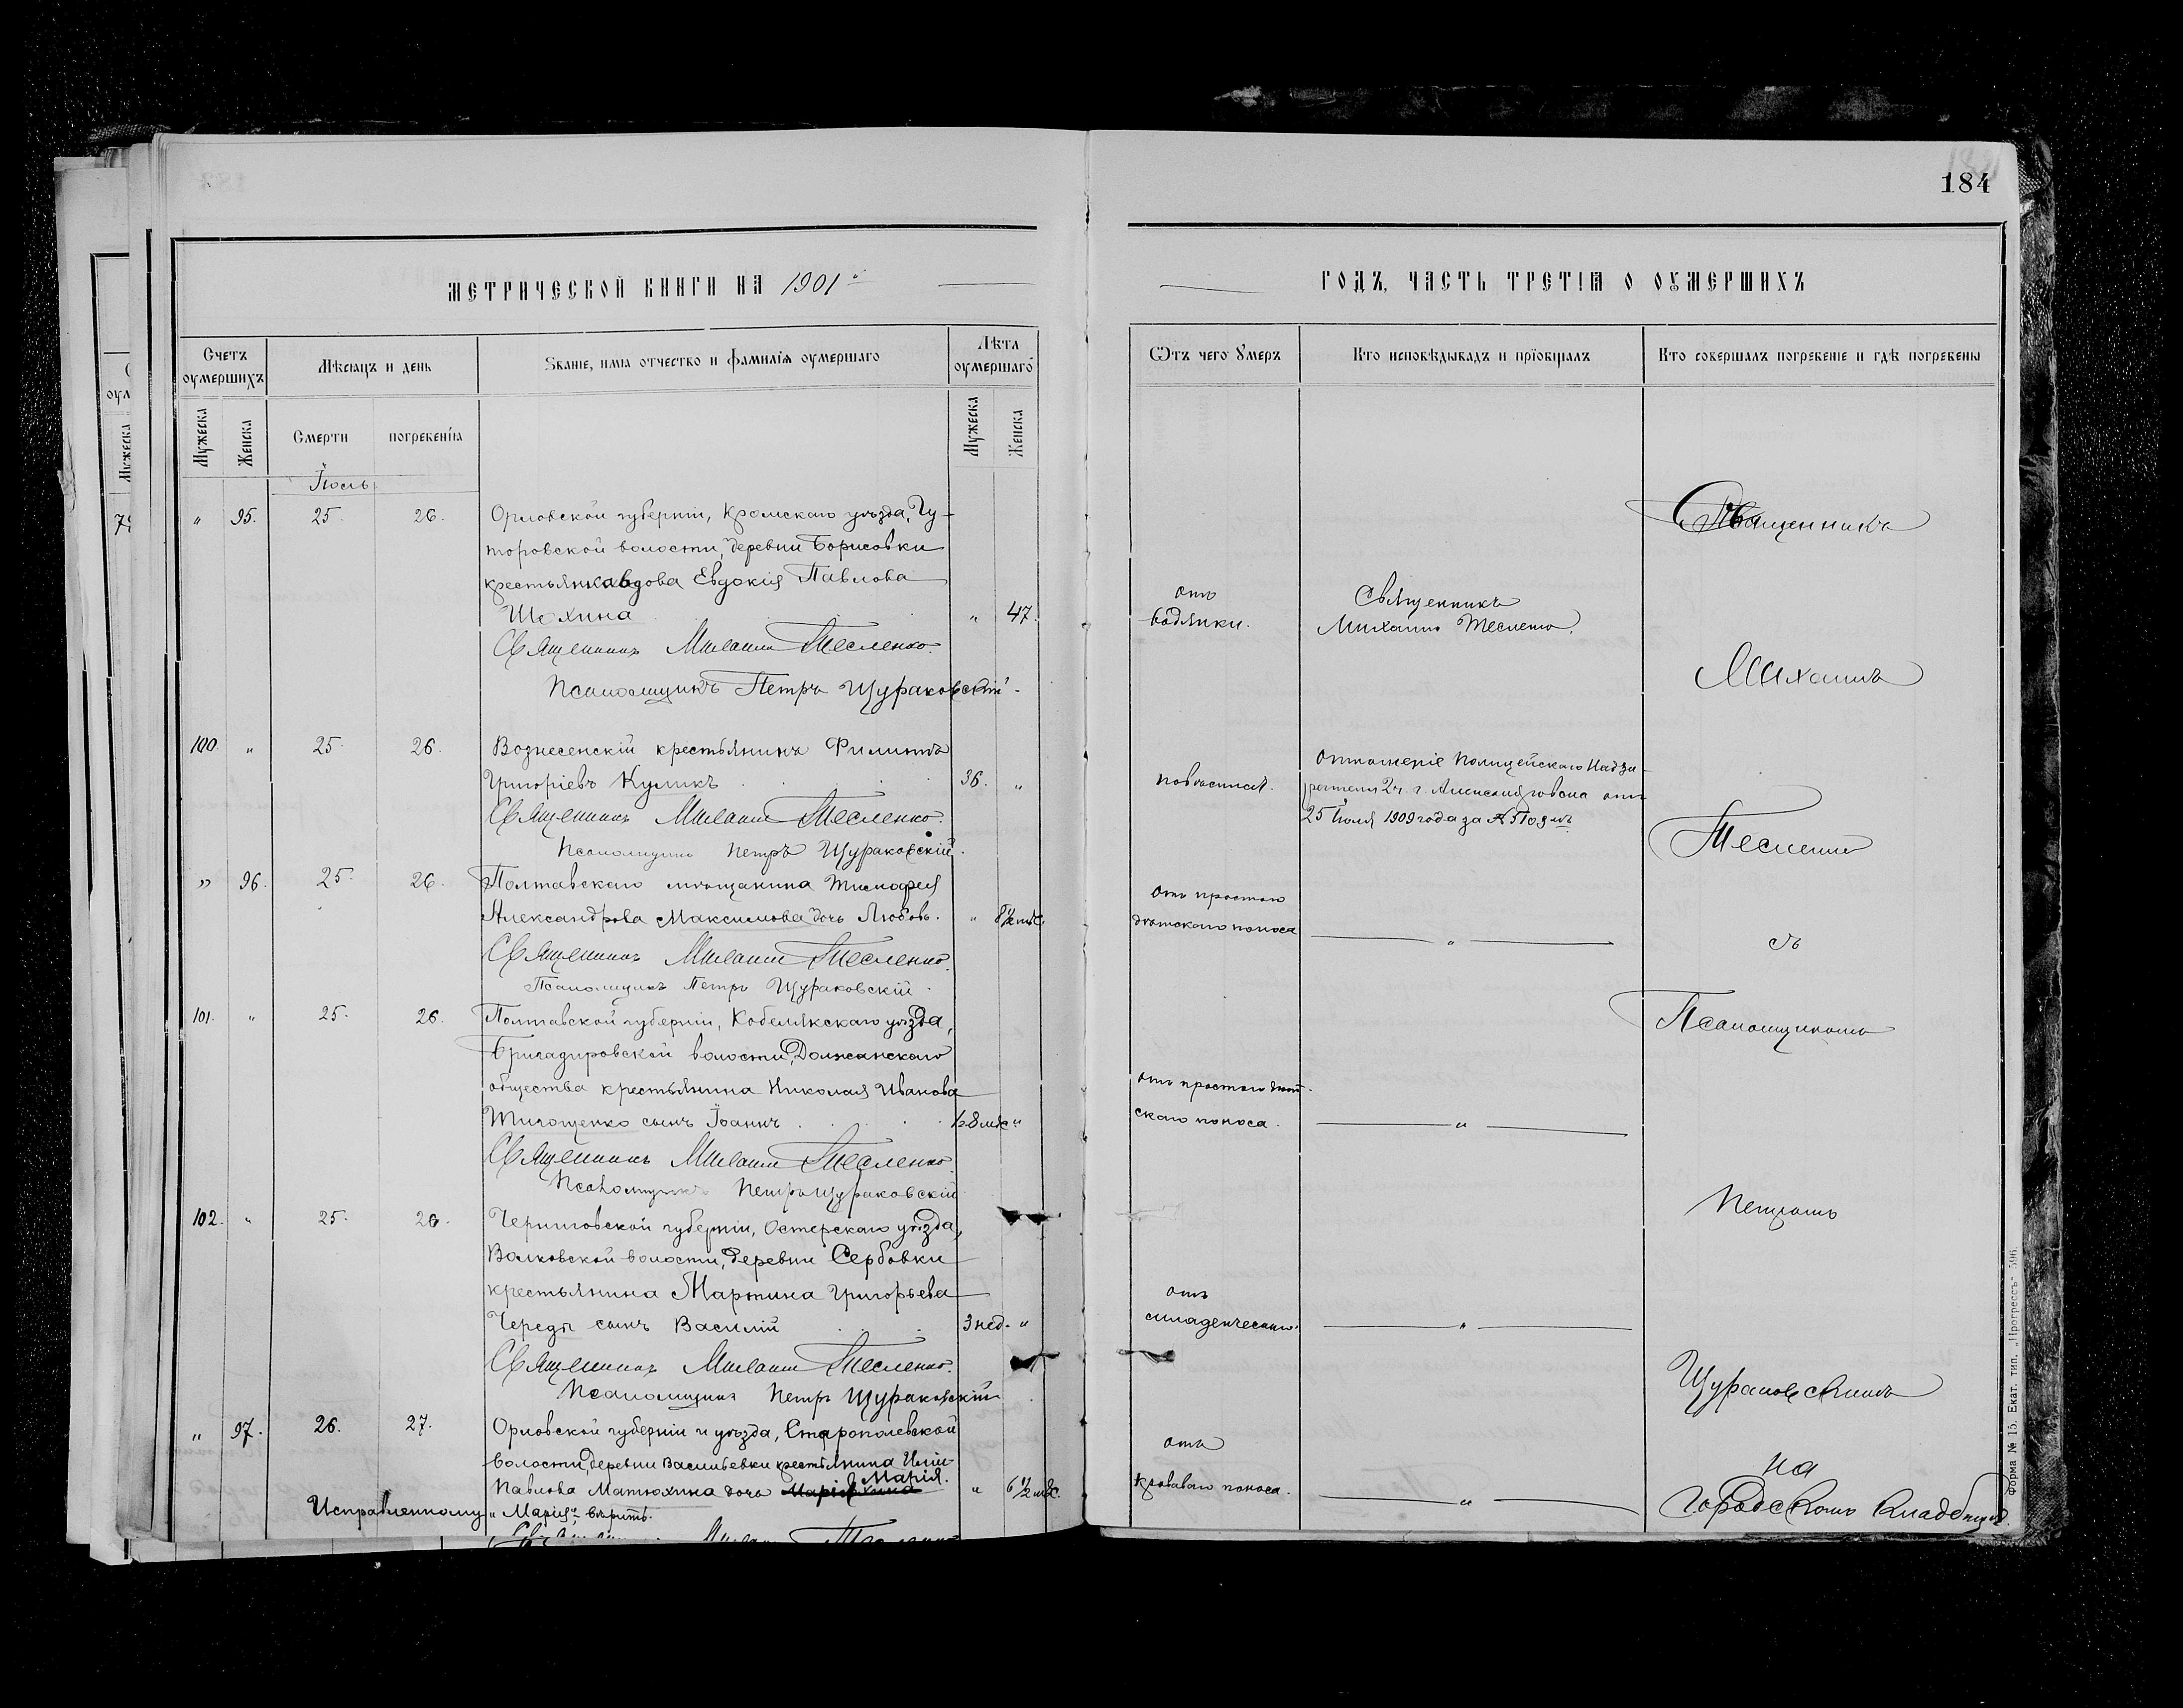 184
МЕТРИЧЕСКОЙ КНИГИ НА 1901
ГОДЪ, ЧАСТЬ ТРЕТІѦ О ОУМЕРШИХЪ
Счетъ оумершихъ
Мѣсѧцъ и день
Званіе, имѧ отчество и фамиліѧ оумершаго
Лѣта оумершаго
Ѿтъ чего Умеръ
Кто исповѣдывалъ и пріобщалъ
Кто совершалъ погребеніе и гдѣ погребены
Мужеска
Женска
Смерти
погребеніѧ
Мужеска
Женска
Іюль
" 95. 25. 26. Орловской губерніи, Кромскаго уѣзда, Гу-
торовской волости, деревни Борисовки
крестьянка вдова Евдокія Павлова
Шохина " 47.
отъ
водянки.
Священникъ
Михаилъ Тесленко.
Священникъ Михаилъ Тесленко.
Псаломщикъ Петръ Щураковскій.
100 " 25. 26. Вознесенскій крестьянинъ Филиппъ
Григоріевъ Куликъ 36. "
повѣсился.
отношеніе Полицейскаго Надзи-
рателя 2 ч. г. Александровска отъ
25 Іюля 1909 года за №
Священникъ Михаилъ Тесленко.
Псаломщикъ Петръ Щураковскій.
" 96. 25. 26. Полтавскаго мѣщанина Тимофея
Александрова Максимова дочь Любовь. " 8½ мѣс.
отъ простого
дѣтскаго поноса
"
Священникъ Михаилъ Тесленко.
Псаломщикъ Петръ Щураковскій.
101. " 25. 26. Полтавской губерніи, Кобелякскаго уѣзда,
Бригадировской волости, Должанскаго
общества крестьянина Николая Иванова
Тимошенко сынъ Іоаннъ 8 мѣс "
отъ простого дѣт-
скаго поноса.
"
Священникъ Михаилъ Тесленко.
Псаломщикъ Петръ Щураковскій
102. " 25. 26. Черниговской губерніи, Остерскаго уѣзда,
Волковской волости, деревни Сербовки
крестьянина Мартина Григорьева
Череды сынъ Василій 3 нед. "
отъ
младенческаго.
"
Священникъ Михаилъ Тесленко.
Псаломщикъ Петръ Щураковскій
" 97. 26. 27. Орловской губерніи и уѣзда, Старопольской
волости, деревни Васильевки крестьянина Ильи
Павлова Матюхина дочь Марія. " 6½ мѣс.
отъ
кроваваго поноса.
"
Исправленному „Марія" вѣрить.
Священникъ Михаилъ Тесленко
Священникъ
Михаилъ
Тесленко
съ
Псаломщикомъ
Петромъ
Щураковскимъ
на
городскомъ кладбищѣ.
Форма № 15. Екат. тип. „Прогрессъ" 596.